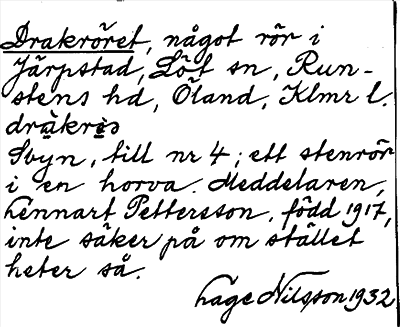 Drakröret, något rör i
Järpstad, Löt sn, Run-
stens hd, Öland, Klmr l.
I byn, till nr 4; ett stenrör
i en horva. Meddelaren,
Lennart Pettersson, född 1917,
inte säker på om stället
heter så.
Låge Nilsson 1932